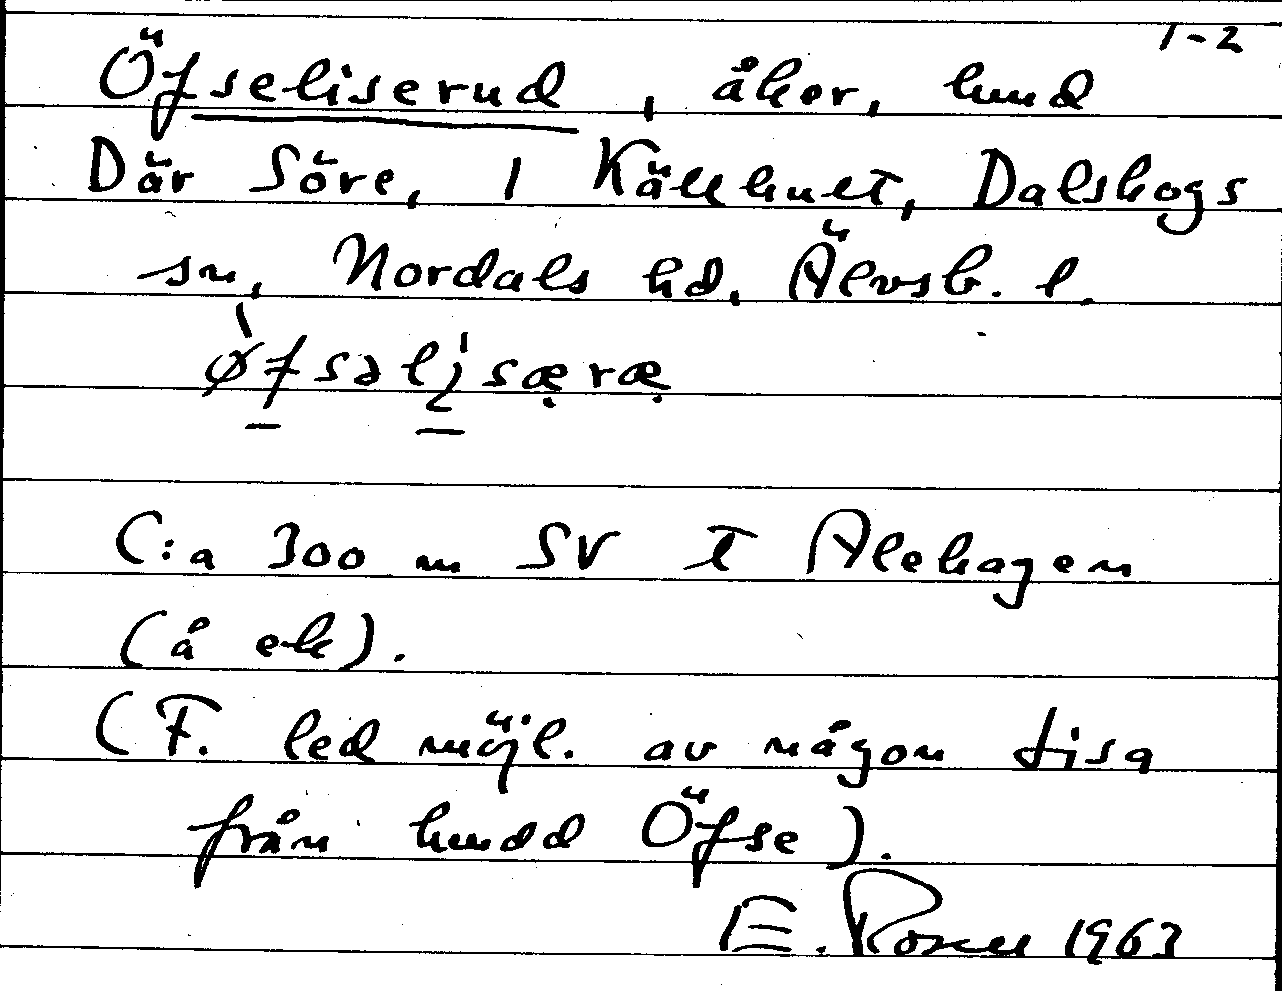 1-2
Öfseliserud, åker, hmd
Där Söre, 1 Källhult, Dalskogs
sn, Nordals hd. Älvsb. l.
C:a 300 m SV t Alehagen
(å ek).
(F. led möjl. av någon Lisa
från hmdd Öfse).
E. Rosell 1963